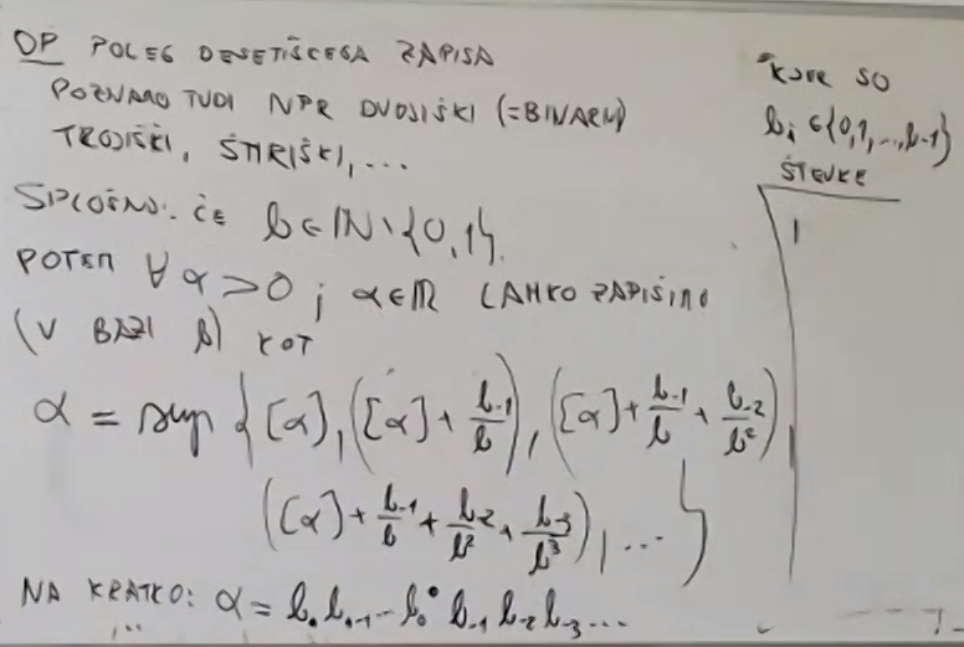 OP POLEG DESETIŠCEGA ZAPISA
POZNAMO TUDI NPR DVOJIŠKI (=BINARNI)
TROJIŠKI, ŠTIRIŠKI, ...
SPLOŠNO: ČE b ∈ ℕ \ {0,1}.
POTEM ∀ α > 0 ; α ∈ ℝ LAHKO ZAPIŠIMO
(V BAZI b) KOT
α = sup { [α], ([α] + b₋₁/b), ([α] + b₋₁/b + b₋₂/b²),
([α] + b₋₁/b + b₋₂/b² + b₋₃/b³), ... }
NA KRATKO:
KJER SO
bᵢ ∈ {0,1,...,b-1}
ŠTEVKE